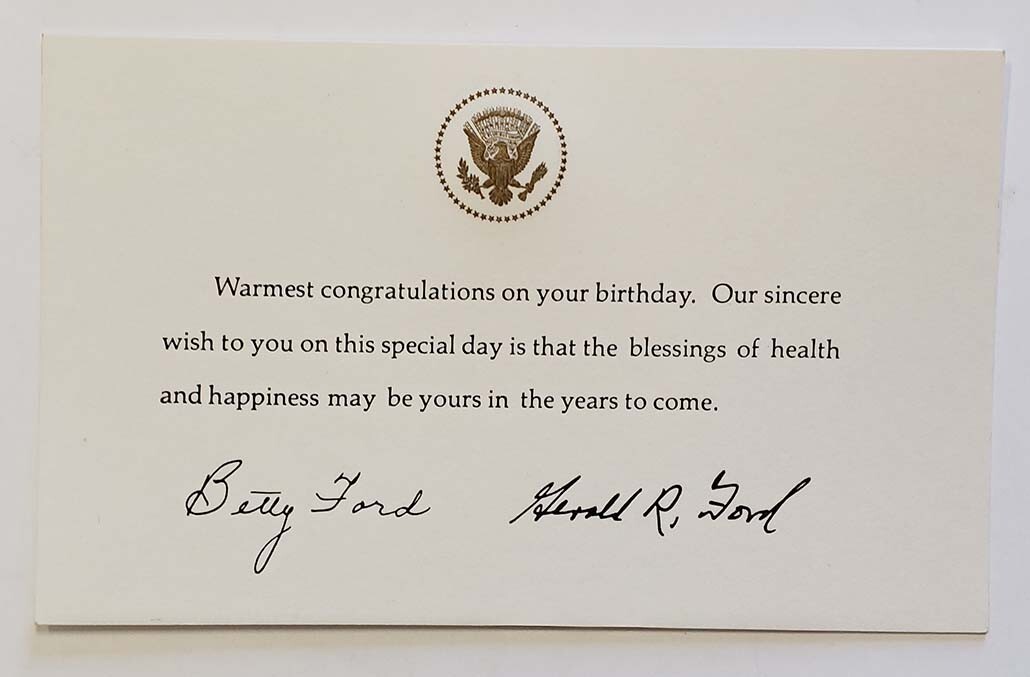 Warmest congratulations on your birthday. Our sincere
wish to you on this special day is that the blessings of health
and happiness may be yours in the years to come.
Betty Ford Gerald R. Ford